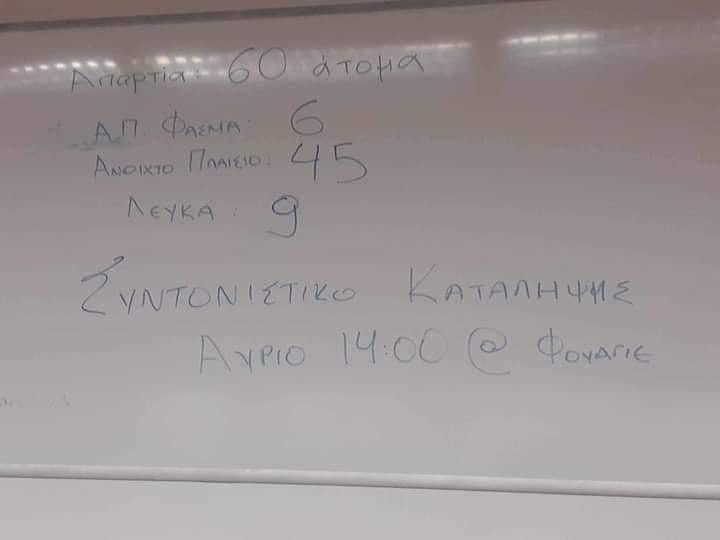 Απαρτία: 60 άτομα
Α.Π. ΦΑΣΜΑ: 6
ΑΝΟΙΧΤΟ ΠΛΑΙΣΙΟ: 45
ΛΕΥΚΑ: 9
ΣΥΝΤΟΝΙΣΤΙΚΟ ΚΑΤΑΛΗΨΗΣ
ΑΥΡΙΟ 14:00 @ ΦΟΥΑΓΙΕ